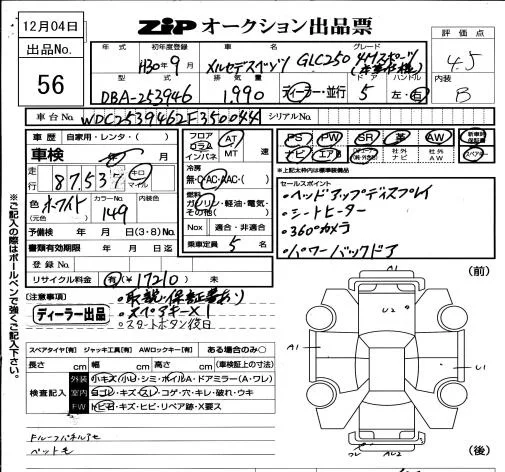 12月04日
ZiP オークション出品票
出品No.
56
評価点
4.5
内装
B
年式 初年度登録 車名 グレード
H30年9月 メルセデスベンツ GLC250 4Mスポーツ
(本革仕様)
型式 排気量 ドア ハンドル
DBA-253946 1.990 ディーラー・並行 5 左・右
車台No. WDC2539462F350044 シリアルNo.
車歴 自家用・レンタ・( )
車検 年 月
走行 87.537 キロ マイル
色(元色) ホワイト カラーNo. 149 内装色
予備検 年 月 日(3・8)No.
書類有効期限 年 月 日迄
登録No.
リサイクル料金 有(¥17210) 未
フロア コラム インパネ AT MT 速
冷房 無・C・AC・AAC・( )
燃料 ガソリン・軽油・電気・その他( )
Nox 適合・非適合
乗車定員 5 名
PS PW SR 革 AW 新車時保証書
ナビ エアB 社外ナビ 社外AW スペアキー
*上記太枠内は標準装備品
セールスポイント
・ヘッドアップディスプレイ
・シートヒーター
・360°カメラ
・パワーバックドア
(注意事項)
・取説・保証書あり
・スペアキー×1
・スタートボタン後日
ディーラー出品
※ご記入の際はボールペンで強くご記入下さい。
スペアタイヤ[有] ジャッキ工具[有] AWロックキー[有] ある場合のみ○
長さ cm 幅 cm 高さ cm (車検証上の寸法)
検査記入
外装 小キズ・小U・シミ・ボイルA・ドアミラー(A・ワレ)
室内 ヨゴレ・キズ・スレ・コゲ・穴・キレ・破れ・ウキ
FW トビ石・キズ・ヒビ・リペア跡・X要ス
ペットモ
(前)
A1
U2
A1
U1
ワレ
A2
(後)